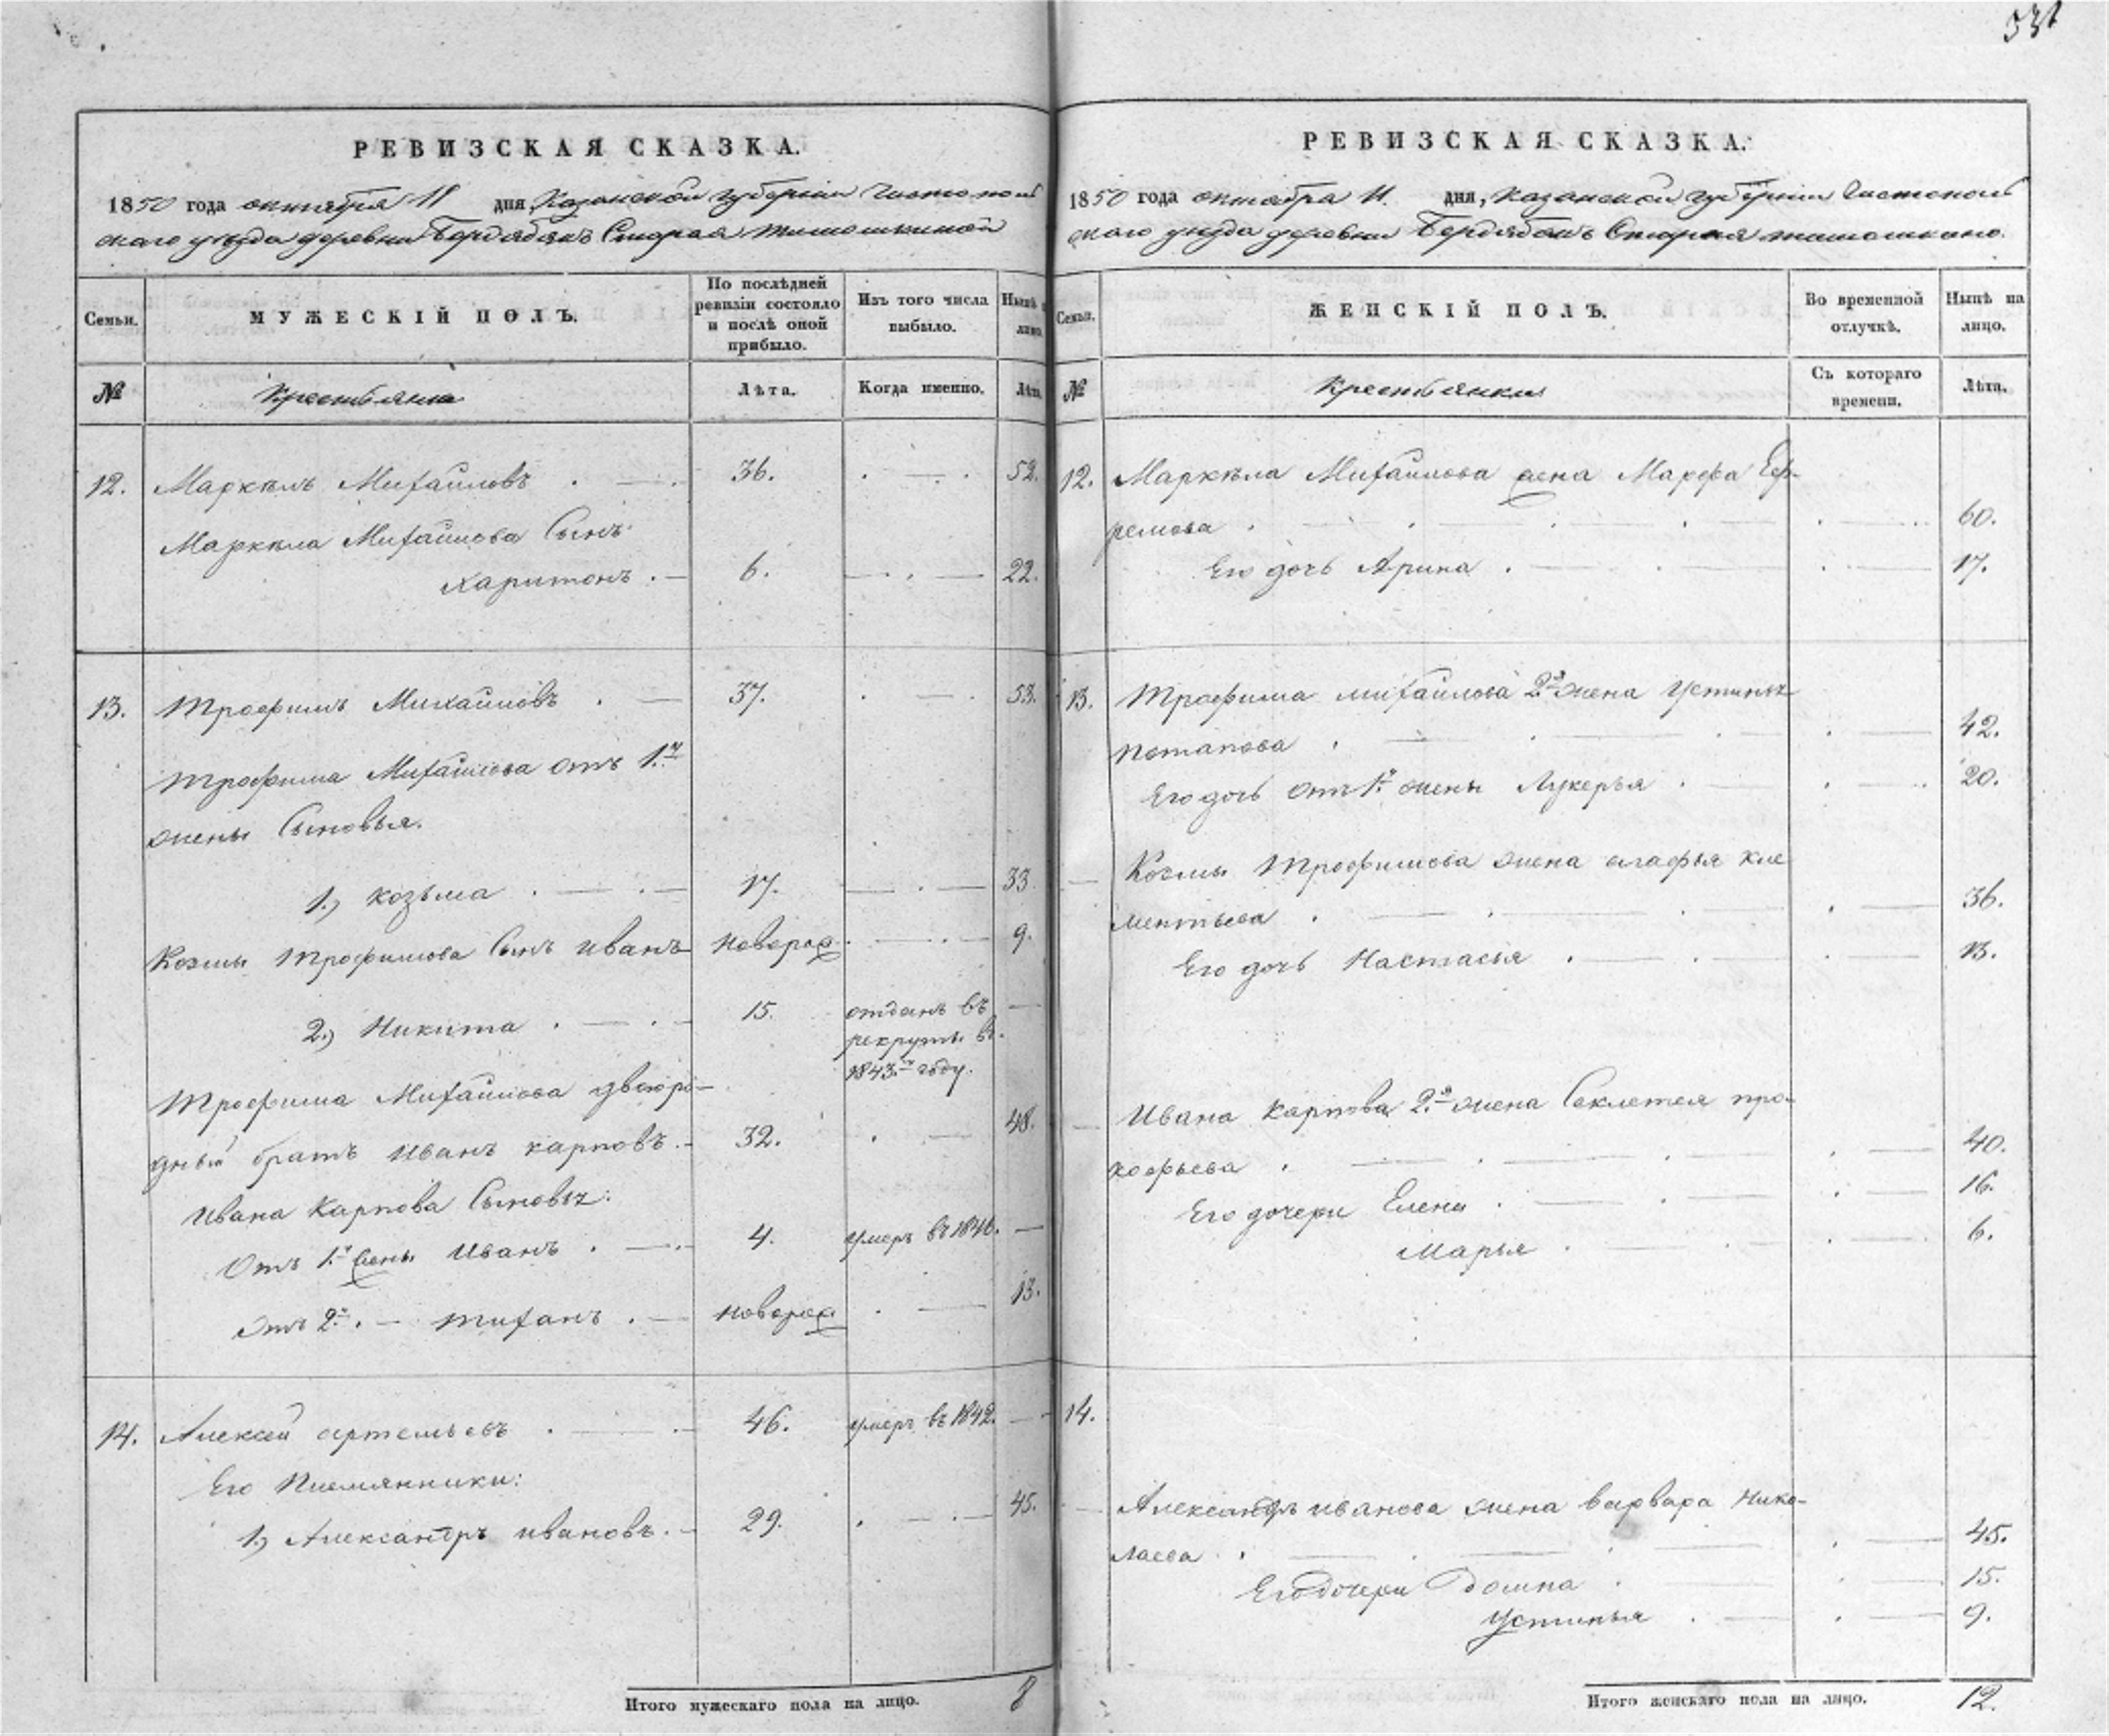 331
РЕВИЗСКАЯ СКАЗКА.
1850 года октября 11 дня, Казанской губернии Чистополь
скаго уезда деревни Старая
Семьи.
МУЖЕСКІЙ ПОЛЪ.
По послѣдней ревизіи состояло и послѣ оной прибыло.
Изъ того числа выбыло.
Нынѣ на лицо.
№
Крестьяне
Лѣта.
Когда именно.
Лѣта.
12. Маркелъ Михайловъ 36. 52.
Маркела Михайлова Сынъ
Харитонъ 6. 22.
13. Трофимъ Михайловъ 37. 53.
Трофима Михайлова отъ 1й
жены Сыновья.
1.) Козьма 17. 33
Козмы Трофимова Сынъ Иванъ новорож. 9.
2.) Никита 15. отданъ въ
рекруты въ
1843м году.
Трофима Михайлова двоюро-
дный братъ Иванъ Карповъ 32. 48.
Ивана Карпова Сыновья:
Отъ 1й жены Иванъ 4. умеръ въ 1846.
Отъ 2й Тихонъ новорож. 13.
14. Алексей Артемьевъ 46. умеръ въ 1842.
Его Племянники:
1.) Александръ Ивановъ 29. 45.
Итого мужескаго пола на лицо. 8
РЕВИЗСКАЯ СКАЗКА.
1850 года октября 11. дня, Казанской губерніи Чистополь
скаго уезда деревни Старая
Семьи.
ЖЕНСКІЙ ПОЛЪ.
Во временной отлучкѣ.
Нынѣ на лицо.
№
Крестьянки
Съ котораго времени.
Лѣта.
12. Маркела Михайлова жена Марфа Еф-
ремова 60.
Его дочь Арина 17.
13. Трофима Михайлова 2я жена Устинья
Потапова 42.
Его дочь от 1й жены Лукерья 20.
Козмы Трофимова жена Агафья Кле
ментьева 36.
Его дочь Настасья 13.
Ивана Карпова 2я жена Секлетея Про-
кофьева 40.
Его дочери Елена 16.
Марья 6.
14.
Александръ Иванова жена Варвара Нико-
лаева 45.
Его дочери Домна 15.
Устинья 9.
Итого женскаго пола на лицо. 12.